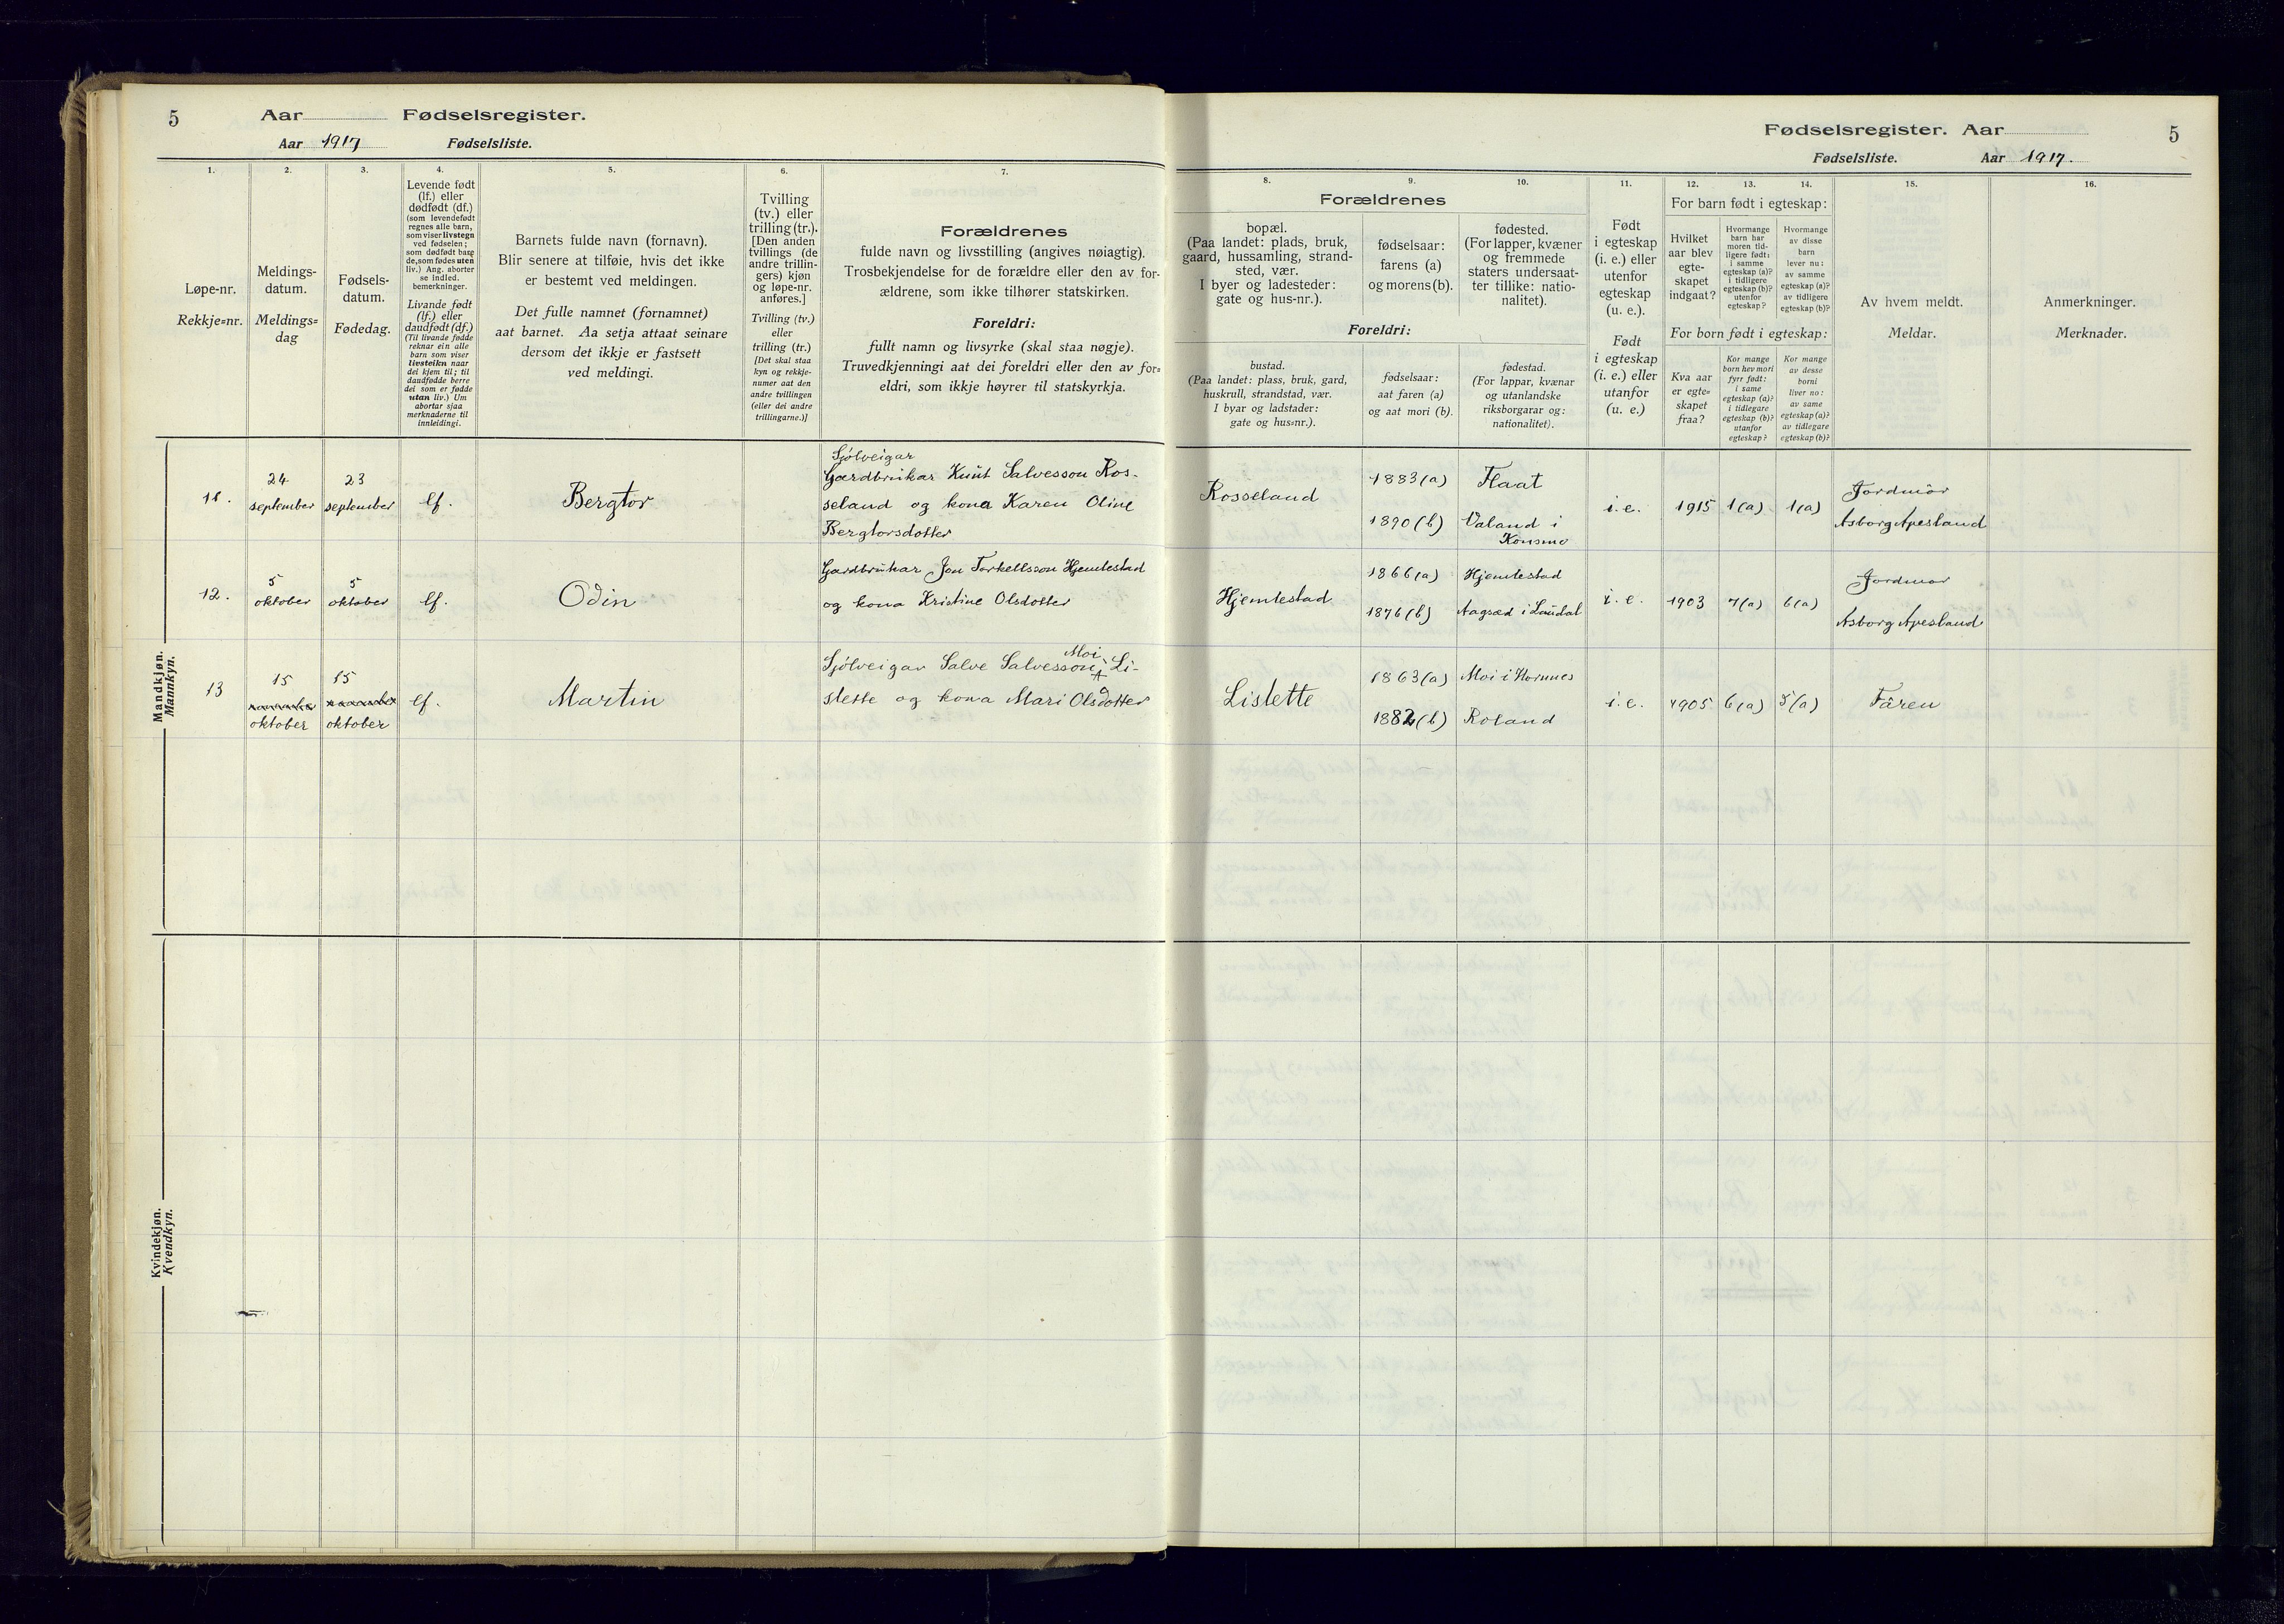 5
Aar
Fødselsregister.
Aar 1917
Fødselsliste.
1.
Løpe-nr.
Rekkje=nr.
2.
Meldings-
datum.
Meldings=
dag
3.
Fødsels-
datum.
Fødedag.
4.
Levende født
(lf.) eller
dødfødt (df.)
(som levendefødt
regnes alle barn,
som viser livstegn
ved fødselen;
som dødfødt bare
de, som fødes uten
liv.) Ang. aborter
se indled.
bemerkninger.
Livande født
(lf.) eller
daudfødt (df.)
(Til livande fødde
reknar ein alle
barn som viser
livsteikn naar
dei kjem til; til
daudfødde berre
dei som er fødde
utan liv.) Um
abortar sjaa
merknaderne til
innleidingi.
5.
Barnets fulde navn (fornavn).
Blir senere at tilføie, hvis det ikke
er bestemt ved meldingen.
Det fulle namnet (fornamnet)
aat barnet. Aa setja attaat seinare
dersom det ikkje er fastsett
ved meldingi.
6.
Tvilling
(tv.) eller
trilling (tr.).
[Den anden
tvillings (de
andre trillin-
gers) kjøn
og løpe-nr.
anføres.]
Tvilling (tv.)
eller
trilling (tr.)
[Det skal staa
kyn og rekkje-
numer aat den
andre tvillingen
(eller dei andre
trillingarne.)]
7.
Forældrenes
fulde navn og livsstilling (angives nøiagtig).
Trosbekjendelse for de forældre eller den av for-
ældrene, som ikke tilhører statskirken.
Foreldri:
fullt namn og livsyrke (skal staa nøgje).
Truvedkjenningi aat dei foreldri eller den av for=
eldri, som ikkje høyrer til statskyrkja.
Fødselsregister. Aar
5
Fødselsliste.
Aar 1917.
Forældrenes
8.
bopæl.
(Paa landet: plads, bruk,
gaard, hussamling, strand-
sted, vær.
I byer og ladesteder:
gate og hus-nr.).
9.
fødselsaar:
farens (a)
og morens (b).
10.
fødested.
(For lapper, kvæner
og fremmede
staters undersaat-
ter tillike: natio-
nalitet).
Foreldri:
bustad.
(Paa landet: plass, bruk, gard,
huskrull, strandstad, vær.
I byar og ladstader:
gate og hus=nr.).
fødselsaar:
aat faren (a)
og aat mori (b).
fødestad.
(For lappar, kvænar
og utanlandske
riksborgarar og:
nationalitet).
11.
Født
i egteskap
(i. e.) eller
utenfor
egteskap
(u. e.).
Født
i egteskap
(i. e.) eller
utanfor
(u. e.)
12.
13.
14.
For barn født i egteskap:
Hvilket
aar blev
egte-
skapet
indgaat?
Hvormange
barn har
moren tid-
ligere født:
i samme
egteskap (a)?
i tidligere
egteskap (b)?
utenfor
egteskap?
Hvormange
av disse
barn
lever nu:
av samme
egteskap (a)?
av tidligere
egteskap (b)?
For born født i egteskap:
Kva aar
er egte=
skapet
fraa?
Kor mange
born hev mori
fyrr født:
i same
egteskap (a)?
i tidlegare
egteskap (b)?
utanfor
egteskap?
Kor mange
av desse
borni
liver no:
av same
egteskap (a)?
av tidlegare
egteskap (b)?
15.
Av hvem meldt.
Meldar.
16.
Anmerkninger.
Merknader.
Mandkjøn.
Mannkyn.
11.
24
september
23
september
lf.
Bergtor
Sjölveigar
Gardbrukar Knut Salvesson Ros-
seland og kona Karen Oline
Bergtorsdotter
Rosseland
1883 (a)
1890 (b)
Flaat
Valand i
Konsmo
i. e.
1915
1(a)
1(a)
Jordmor
Asborg Apesland
12.
5
oktober
5
oktober
lf.
Odin
Gardbrukar Jon Torkellsson Hjemlestad
og kona Kristine Olsdotter
Hjemlestad
1866 (a)
1876 (b)
Hjemlestad
Aagsæd i Laudal
i. e.
1903
7(a)
6(a)
Jordmor
Asborg Apesland
13
15
oktober
15
oktober
lf.
Martin
Sjölveigar Salve Salvesson Moi, Li-
slette og kona Mari Olsdotter
Lislette
1863 (a)
1882 (b)
Moi i Hornnes
Roland
i. e.
1905
6(a)
5(a)
Fåren
Kvindekjøn.
Kvendkyn.